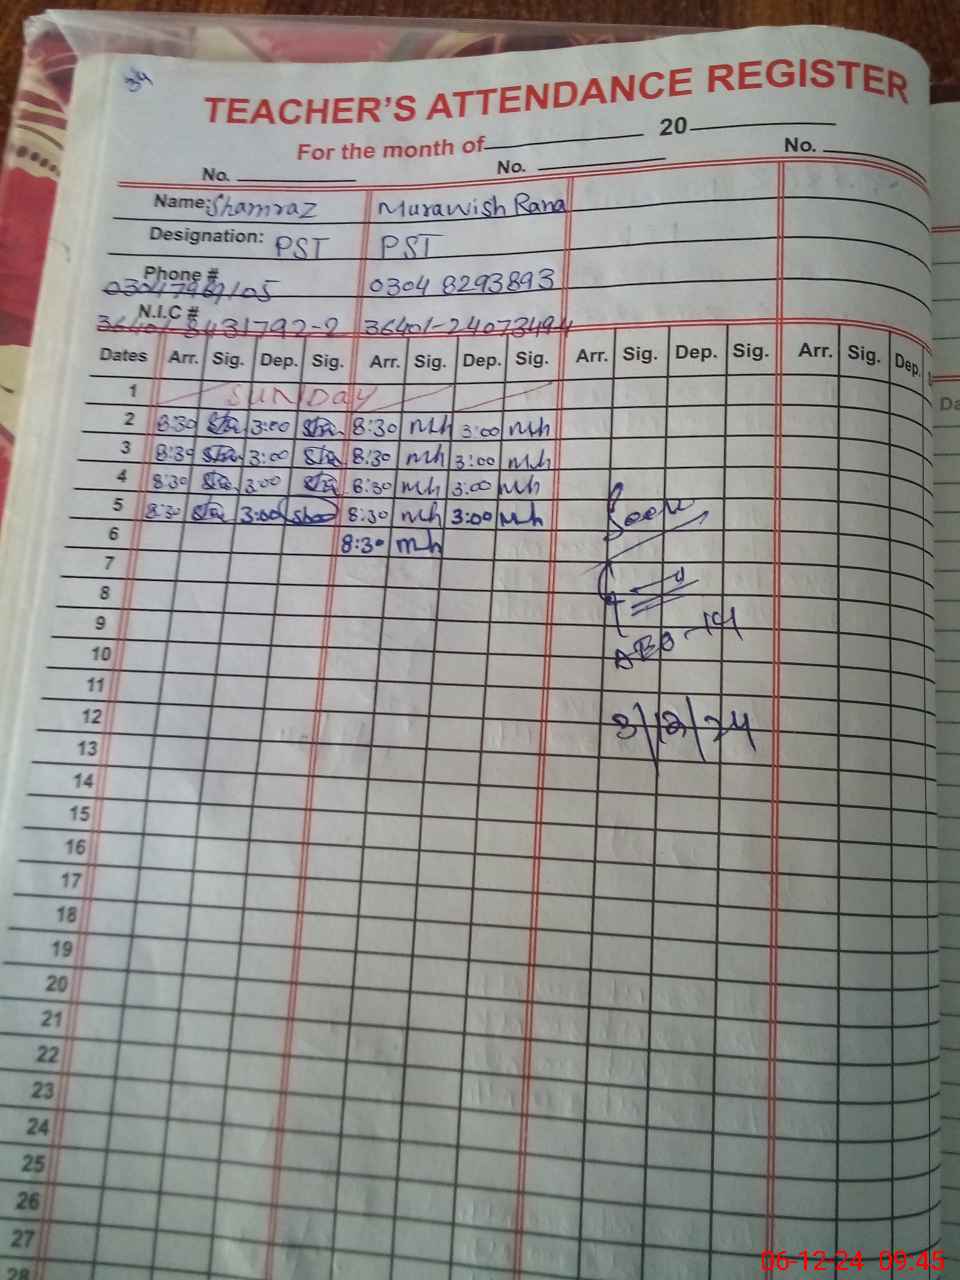 TEACHER'S ATTENDANCE REGISTER
For the month of 20
No. No. No.
Name: Shamraz Murawish Rana
Designation: PST PST
Phone # 03047969105 0304 8293893
N.I.C # 36401-8431792-2 36401-24073494
Dates Arr. Sig. Dep. Sig. Arr. Sig. Dep. Sig. Arr. Sig. Dep. Sig. Arr. Sig. Dep.
1 SUNDAY
2 8:30 Sha 3:00 Sha 8:30 Mh 3:00 Mh
3 8:30 Sha 3:00 Sha 8:30 Mh 3:00 Mh
4 8:30 Sha 3:00 Sha 8:30 Mh 3:00 Mh
5 8:30 Sha 3:00 Sha 8:30 Mh 3:00 Mh
6 8:30 Mh
7
8
9
10
11
12
13
14
15
16
17
18
19
20
21
22
23
24
25
26
27
28
Seen
3/12/24
Da
06-12-24 09:45